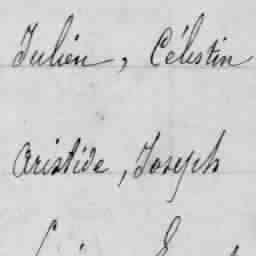 Julien, Célestin
Aristide, Joseph